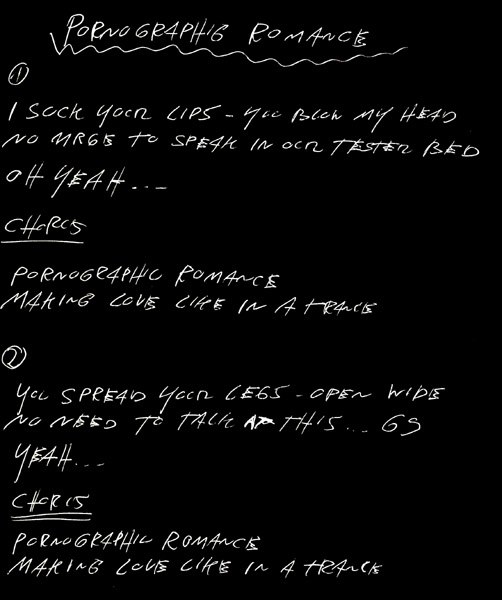 PORNOGRAPHIC ROMANCE
1
I SUCK YOUR LIPS - YOU BLOW MY HEAD
NO URGE TO SPEAK IN OUR TESTER BED
OH YEAH...
CHORUS
PORNOGRAPHIC ROMANCE
MAKING LOVE LIKE IN A TRANCE
2
YOU SPREAD YOUR LEGS - OPEN WIDE
NO NEED TO TALK THIS... 69
YEAH...
CHORUS
PORNOGRAPHIC ROMANCE
MAKING LOVE LIKE IN A TRANCE